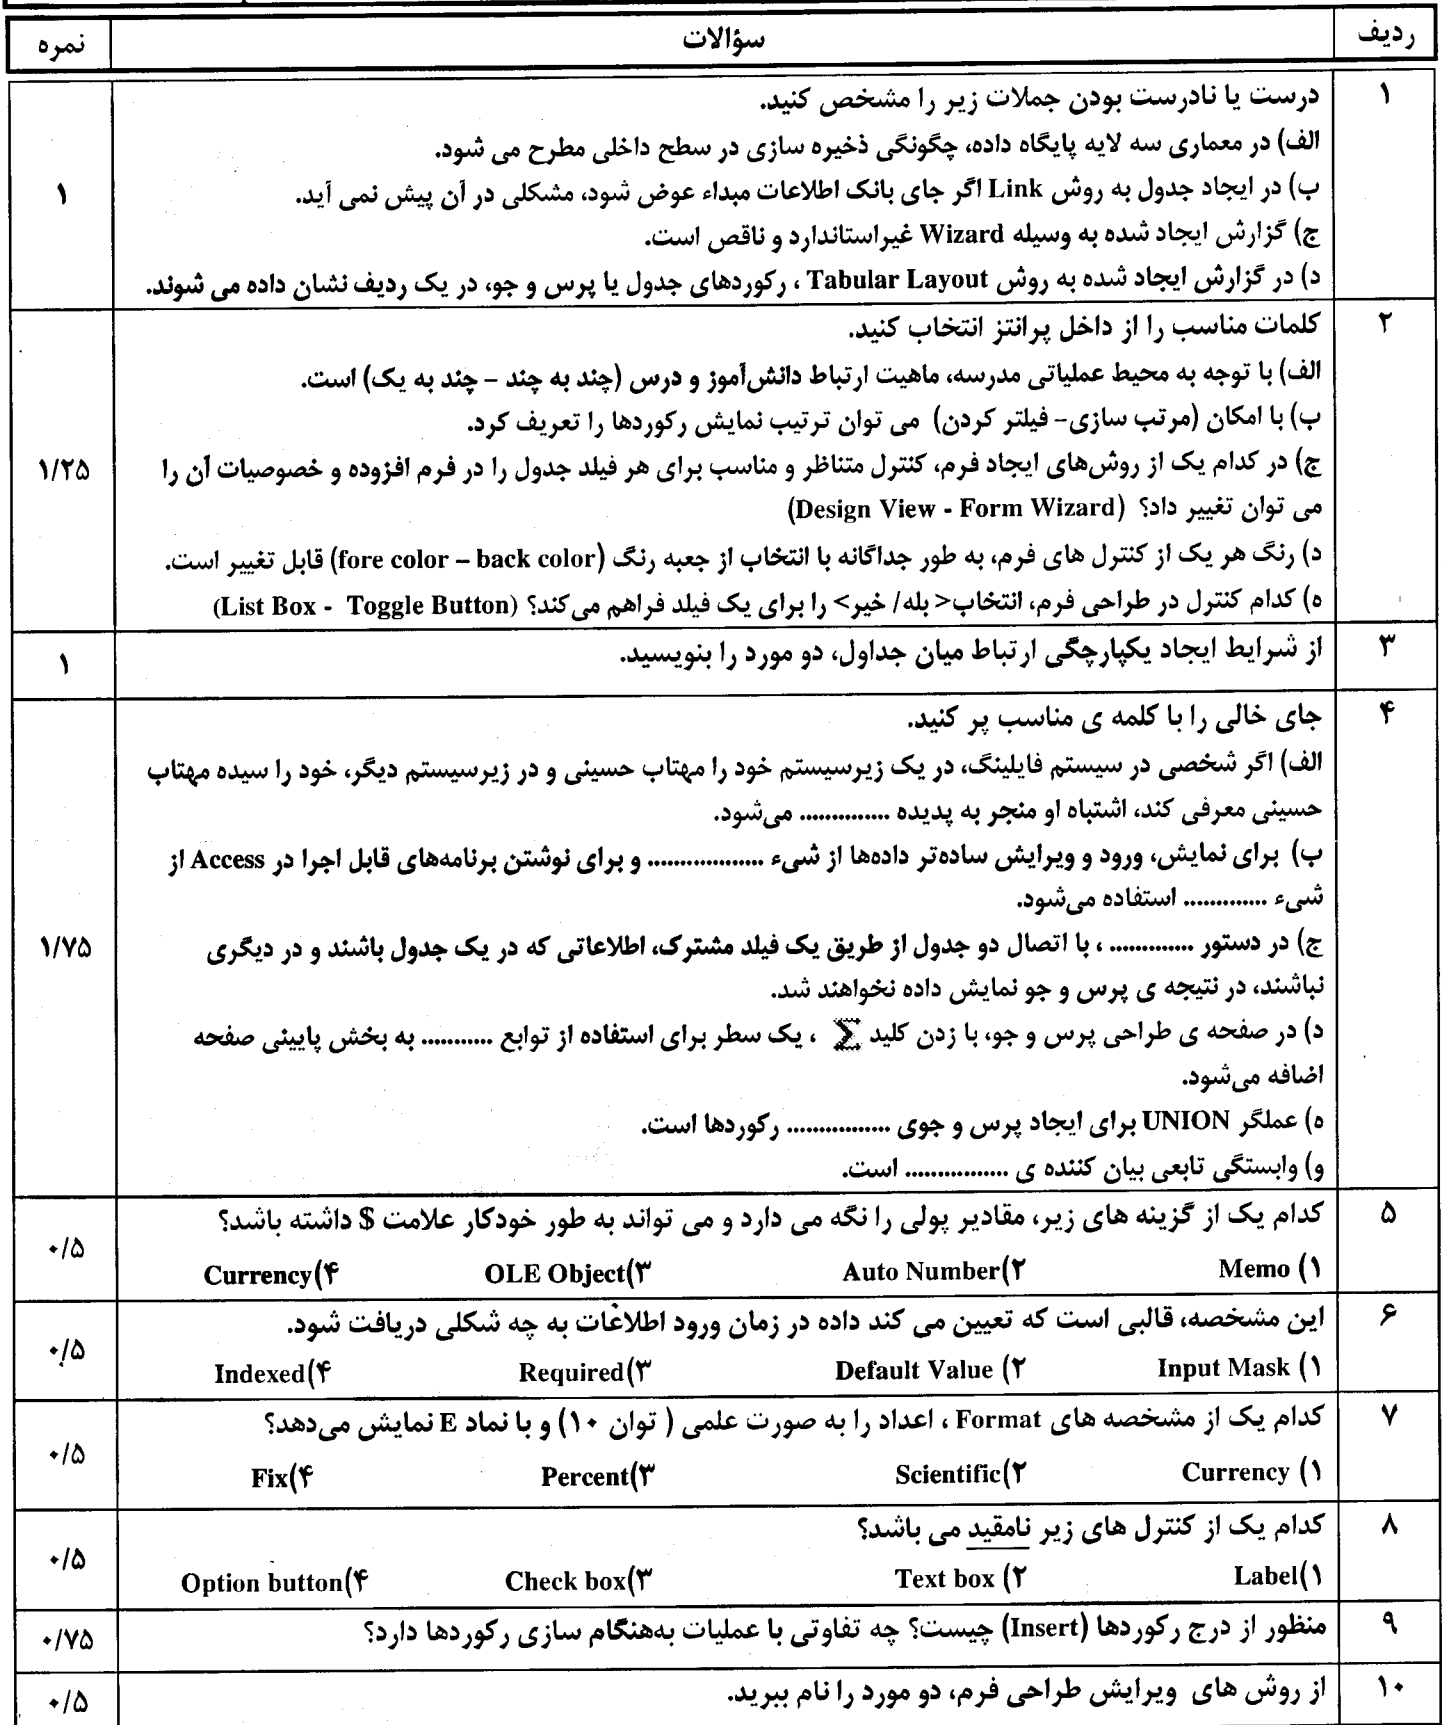 ردیف سؤالات نمره
۱ درست یا نادرست بودن جملات زیر را مشخص کنید.
الف) در معماری سه لایه پایگاه داده، چگونگی ذخیره سازی در سطح داخلی مطرح می شود.
ب) در ایجاد جدول به روش Link اگر جای بانک اطلاعات مبداء عوض شود، مشکلی در آن پیش نمی آید.
۱
ج) گزارش ایجاد شده به وسیله Wizard غیراستاندارد و ناقص است.
د) در گزارش ایجاد شده به روش Tabular Layout ، رکوردهای جدول یا پرس و جو، در یک ردیف نشان داده می شوند.
۲ کلمات مناسب را از داخل پرانتز انتخاب کنید.
الف) با توجه به محیط عملیاتی مدرسه، ماهیت ارتباط دانش‌آموز و درس (چند به چند – چند به یک) است.
ب) با امکان (مرتب سازی- فیلتر کردن) می توان ترتیب نمایش رکوردها را تعریف کرد.
ج) در کدام یک از روش‌های ایجاد فرم، کنترل متناظر و مناسب برای هر فیلد جدول را در فرم افزوده و خصوصیات آن را
۱/۲۵
می توان تغییر داد؟ (Design View - Form Wizard)
د) رنگ هر یک از کنترل های فرم، به طور جداگانه با انتخاب از جعبه رنگ (fore color – back color) قابل تغییر است.
ه) کدام کنترل در طراحی فرم، انتخاب< بله/ خیر> را برای یک فیلد فراهم می‌کند؟ (List Box - Toggle Button)
۳ از شرایط ایجاد یکپارچگی ارتباط میان جداول، دو مورد را بنویسید. ۱
۴ جای خالی را با کلمه ی مناسب پر کنید.
الف) اگر شخصی در سیستم فایلینگ، در یک زیرسیستم خود را مهتاب حسینی و در زیرسیستم دیگر، خود را سیده مهتاب
حسینی معرفی کند، اشتباه او منجر به پدیده .............. می‌شود.
ب) برای نمایش، ورود و ویرایش ساده‌تر داده‌ها از شیء .................. و برای نوشتن برنامه‌های قابل اجرا در Access از
شیء ............. استفاده می‌شود.
ج) در دستور ............. ، با اتصال دو جدول از طریق یک فیلد مشترک، اطلاعاتی که در یک جدول باشند و در دیگری
۱/۷۵
نباشند، در نتیجه ی پرس و جو نمایش داده نخواهند شد.
د) در صفحه ی طراحی پرس و جو، با زدن کلید Σ ، یک سطر برای استفاده از توابع ........... به بخش پایینی صفحه
اضافه می‌شود.
ه) عملگر UNION برای ایجاد پرس و جوی ................ رکوردها است.
و) وابستگی تابعی بیان کننده ی ................ است.
۵ کدام یک از گزینه های زیر، مقادیر پولی را نگه می دارد و می تواند به طور خودکار علامت $ داشته باشد؟ ۰/۵
۱) Memo ۲)Auto Number ۳)OLE Object ۴)Currency
۶ این مشخصه، قالبی است که تعیین می کند داده در زمان ورود اطلاعات به چه شکلی دریافت شود. ۰/۵
۱) Input Mask ۲) Default Value ۳)Required ۴)Indexed
۷ کدام یک از مشخصه های Format ، اعداد را به صورت علمی ( توان ۱۰) و با نماد E نمایش می‌دهد؟ ۰/۵
۱) Currency ۲)Scientific ۳)Percent ۴)Fix
۸ کدام یک از کنترل های زیر نامقید می باشد؟ ۰/۵
۱)Label ۲) Text box ۳)Check box ۴)Option button
۹ منظور از درج رکوردها (Insert) چیست؟ چه تفاوتی با عملیات به‌هنگام سازی رکوردها دارد؟ ۰/۷۵
۱۰ از روش های ویرایش طراحی فرم، دو مورد را نام ببرید. ۰/۵